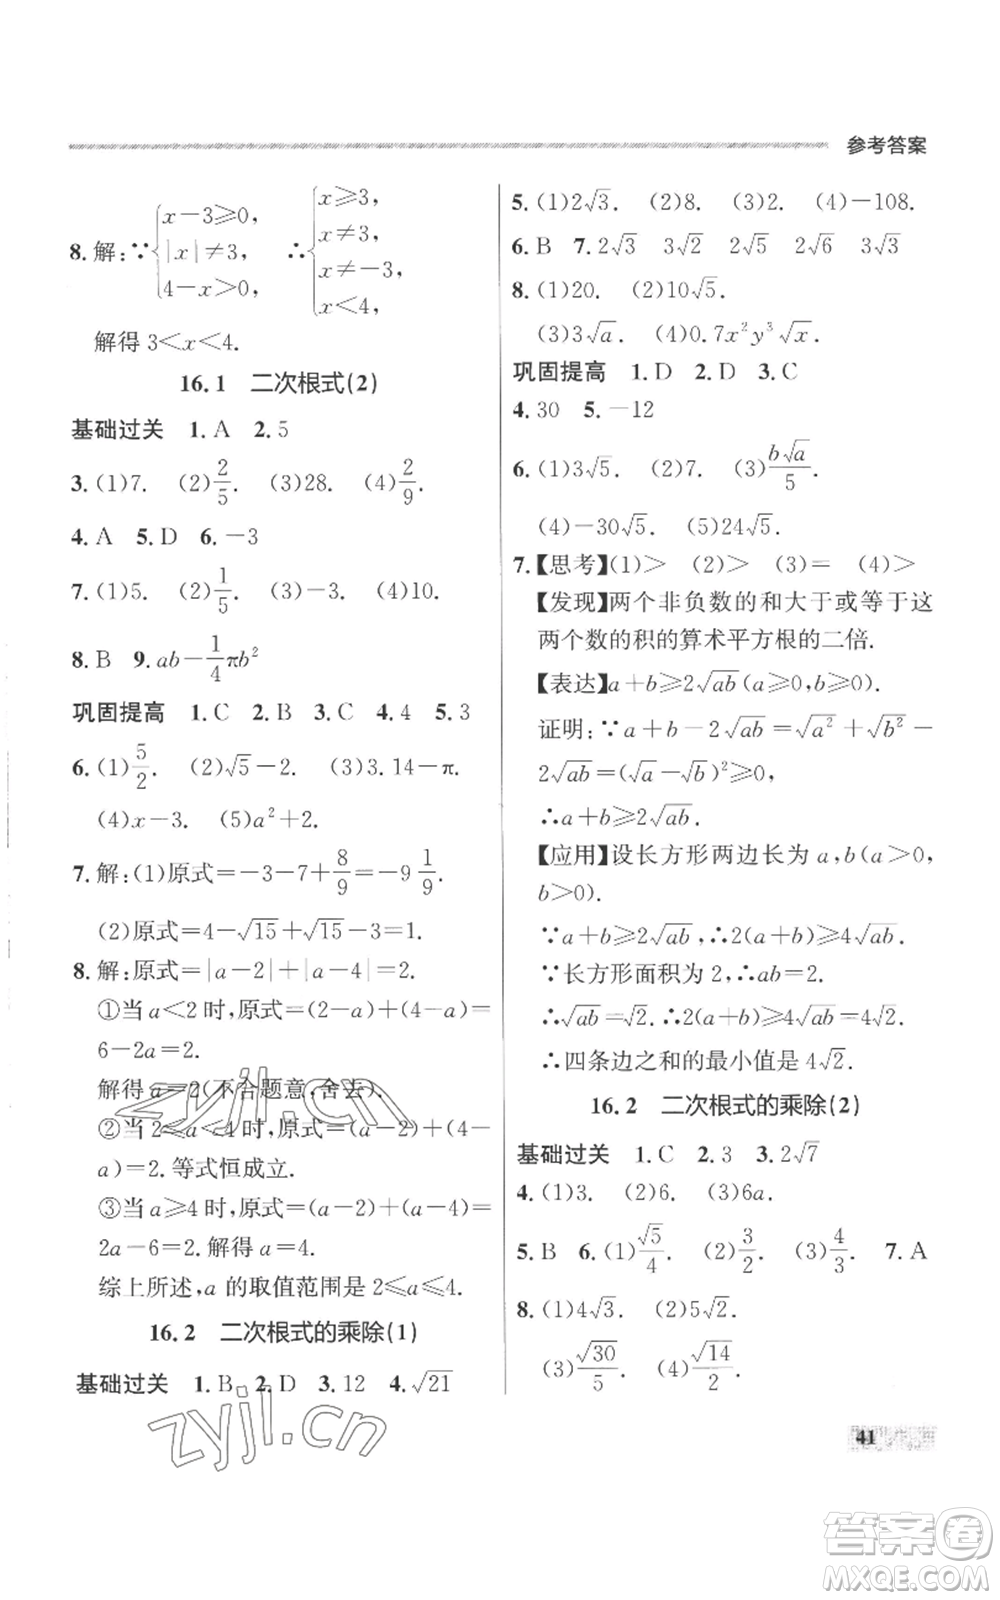 参考答案
8.解:∵{x-3≥0, |x|≠3, 4-x>0, ∴{x≥3, x≠3, x≠-3, x<4,
解得 3<x<4.
16.1 二次根式(2)
基础过关 1.A 2.5
3.(1)7. (2)2/5. (3)28. (4)2/9.
4.A 5.D 6.-3
7.(1)5. (2)1/5. (3)-3. (4)10.
8.B 9.ab-1/4πb²
巩固提高 1.C 2.B 3.C 4.4 5.3
6.(1)5/2. (2)√5-2. (3)3.14-π.
(4)x-3. (5)a²+2.
7.解:(1)原式=-3-7+8/9=-9 1/9.
(2)原式=4-√15+√15-3=1.
8.解:原式=|a-2|+|a-4|=2.
①当 a<2 时,原式=(2-a)+(4-a)=
6-2a=2.
解得 a=2(不合题意,舍去).
②当 2≤a<4 时,原式=(a-2)+(4-
a)=2.等式恒成立.
③当 a≥4 时,原式=(a-2)+(a-4)=
2a-6=2.解得 a=4.
综上所述,a 的取值范围是 2≤a≤4.
16.2 二次根式的乘除(1)
基础过关 1.B 2.D 3.12 4.√21
5.(1)2√3. (2)8. (3)2. (4)-108.
6.B 7.2√3 3√2 2√5 2√6 3√3
8.(1)20. (2)10√5.
(3)3√a. (4)0.7x²y³√x.
巩固提高 1.D 2.D 3.C
4.30 5.-12
6.(1)3√5. (2)7. (3)b√a/5.
(4)-30√5. (5)24√5.
7.【思考】(1)> (2)> (3)= (4)>
【发现】两个非负数的和大于或等于这
两个数的积的算术平方根的二倍.
【表达】a+b≥2√ab(a≥0,b≥0).
证明:∵a+b-2√ab=√a²+√b²-
2√ab=(√a-√b)²≥0,
∴a+b≥2√ab.
【应用】设长方形两边长为 a,b(a>0,
b>0).
∵a+b≥2√ab,∴2(a+b)≥4√ab.
∵长方形面积为 2,∴ab=2.
∴√ab=√2.∴2(a+b)≥4√ab=4√2.
∴四条边之和的最小值是 4√2.
16.2 二次根式的乘除(2)
基础过关 1.C 2.3 3.2√7
4.(1)3. (2)6. (3)6a.
5.B 6.(1)√5/4. (2)3/2. (3)4/3. 7.A
8.(1)4√3. (2)5√2.
(3)√30/5. (4)√14/2.
41
zyjl.cn
zyjl.cn
答案圈
MXQE.COM